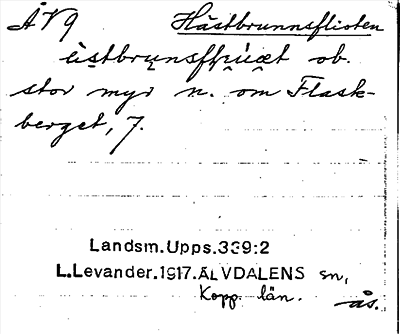 ÄV9 Hästbrunnsflioten
stor myr n. om Flask-
berget, 7.
Landsm.Upps.339:2
L.Levander.1917.ÄLVDALENS sn,
Kopp. län.
ås.